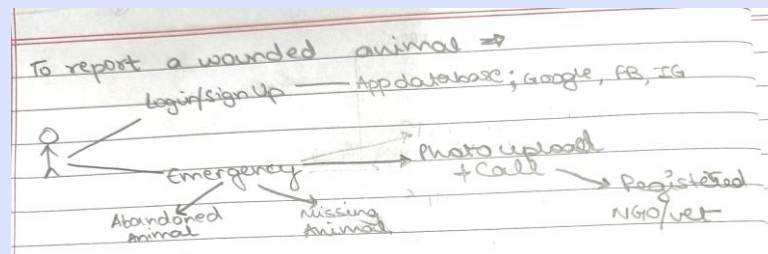 To report a wounded animal ⇒
Login/Sign Up — App database; Google, FB, IG
Emergency → Photo upload
+ Call
Registered
NGO/vet
Abandoned
Animal
Missing
Animal